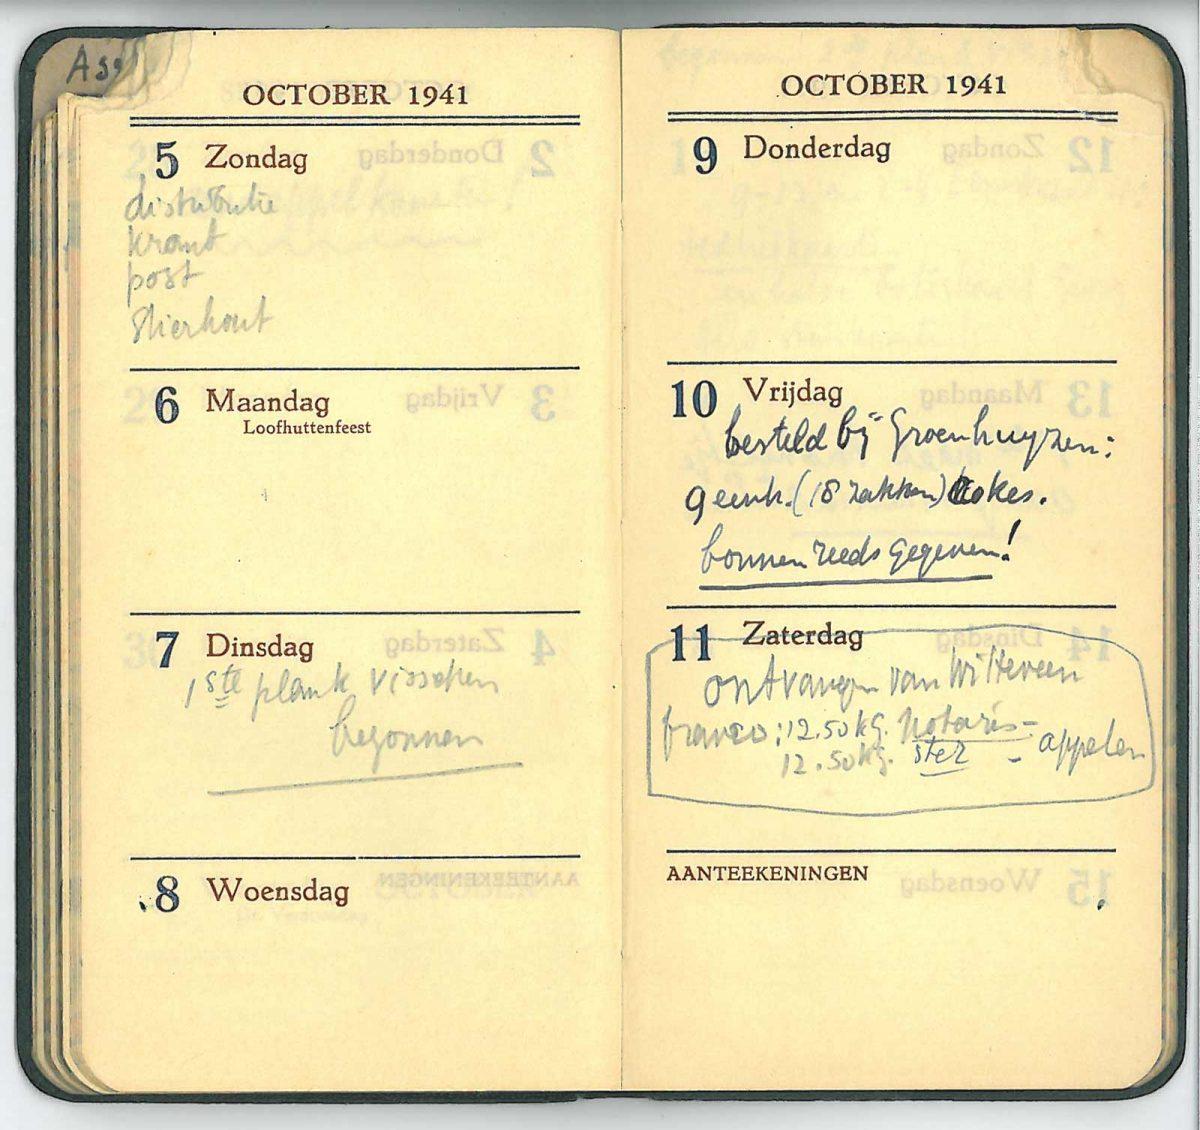 OCTOBER 1941
5 Zondag
distributie
krant
post
Slierhout
6 Maandag
Loofhuttenfeest
7 Dinsdag
1ste plank visschen
begonnen
8 Woensdag
OCTOBER 1941
9 Donderdag
10 Vrijdag
besteld bij Groenhuyzen:
9 eenh. (18 zakken) cokes.
bonnen reeds gegeven!
11 Zaterdag
ontvangen van Witteveen
franco: 12.50 kg. Notaris-
12.50 kg. ster - appelen
AANTEEKENINGEN